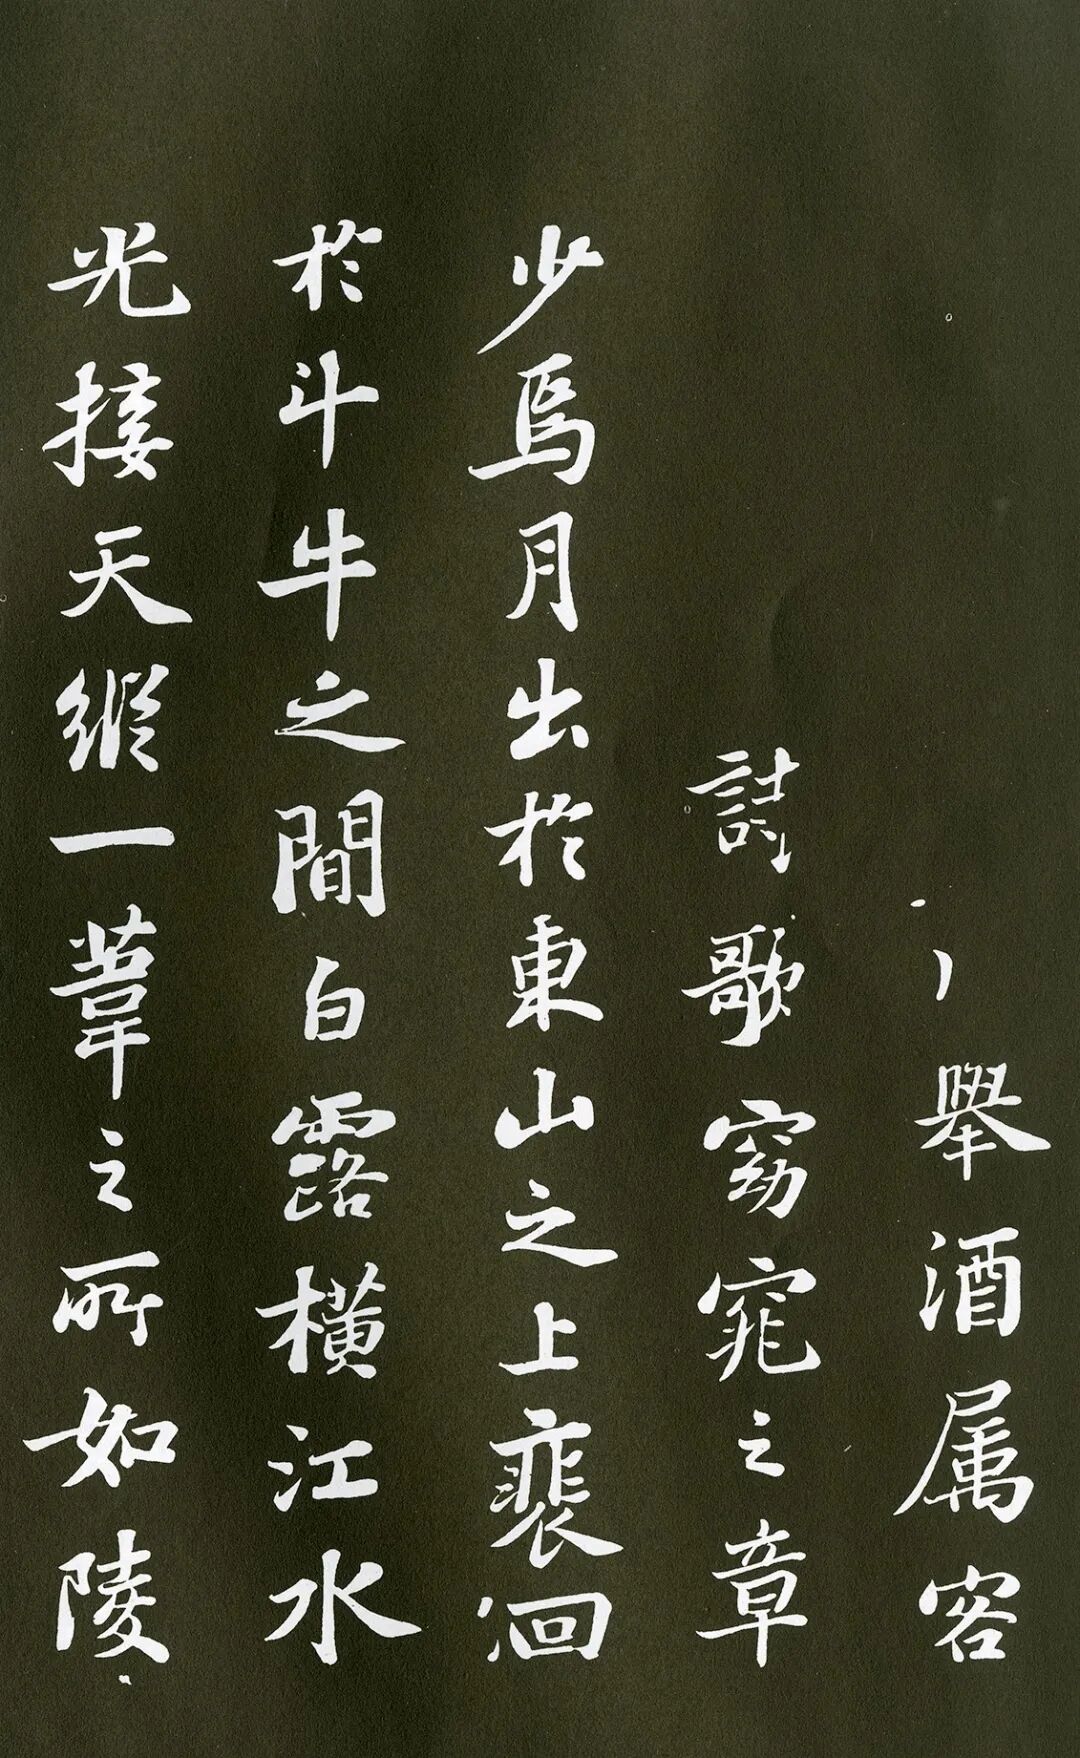 舉酒属客
詩歌窈窕之章
少焉月出於東山之上裴回
於斗牛之間白露橫江水
光接天縱一葦之所如陵